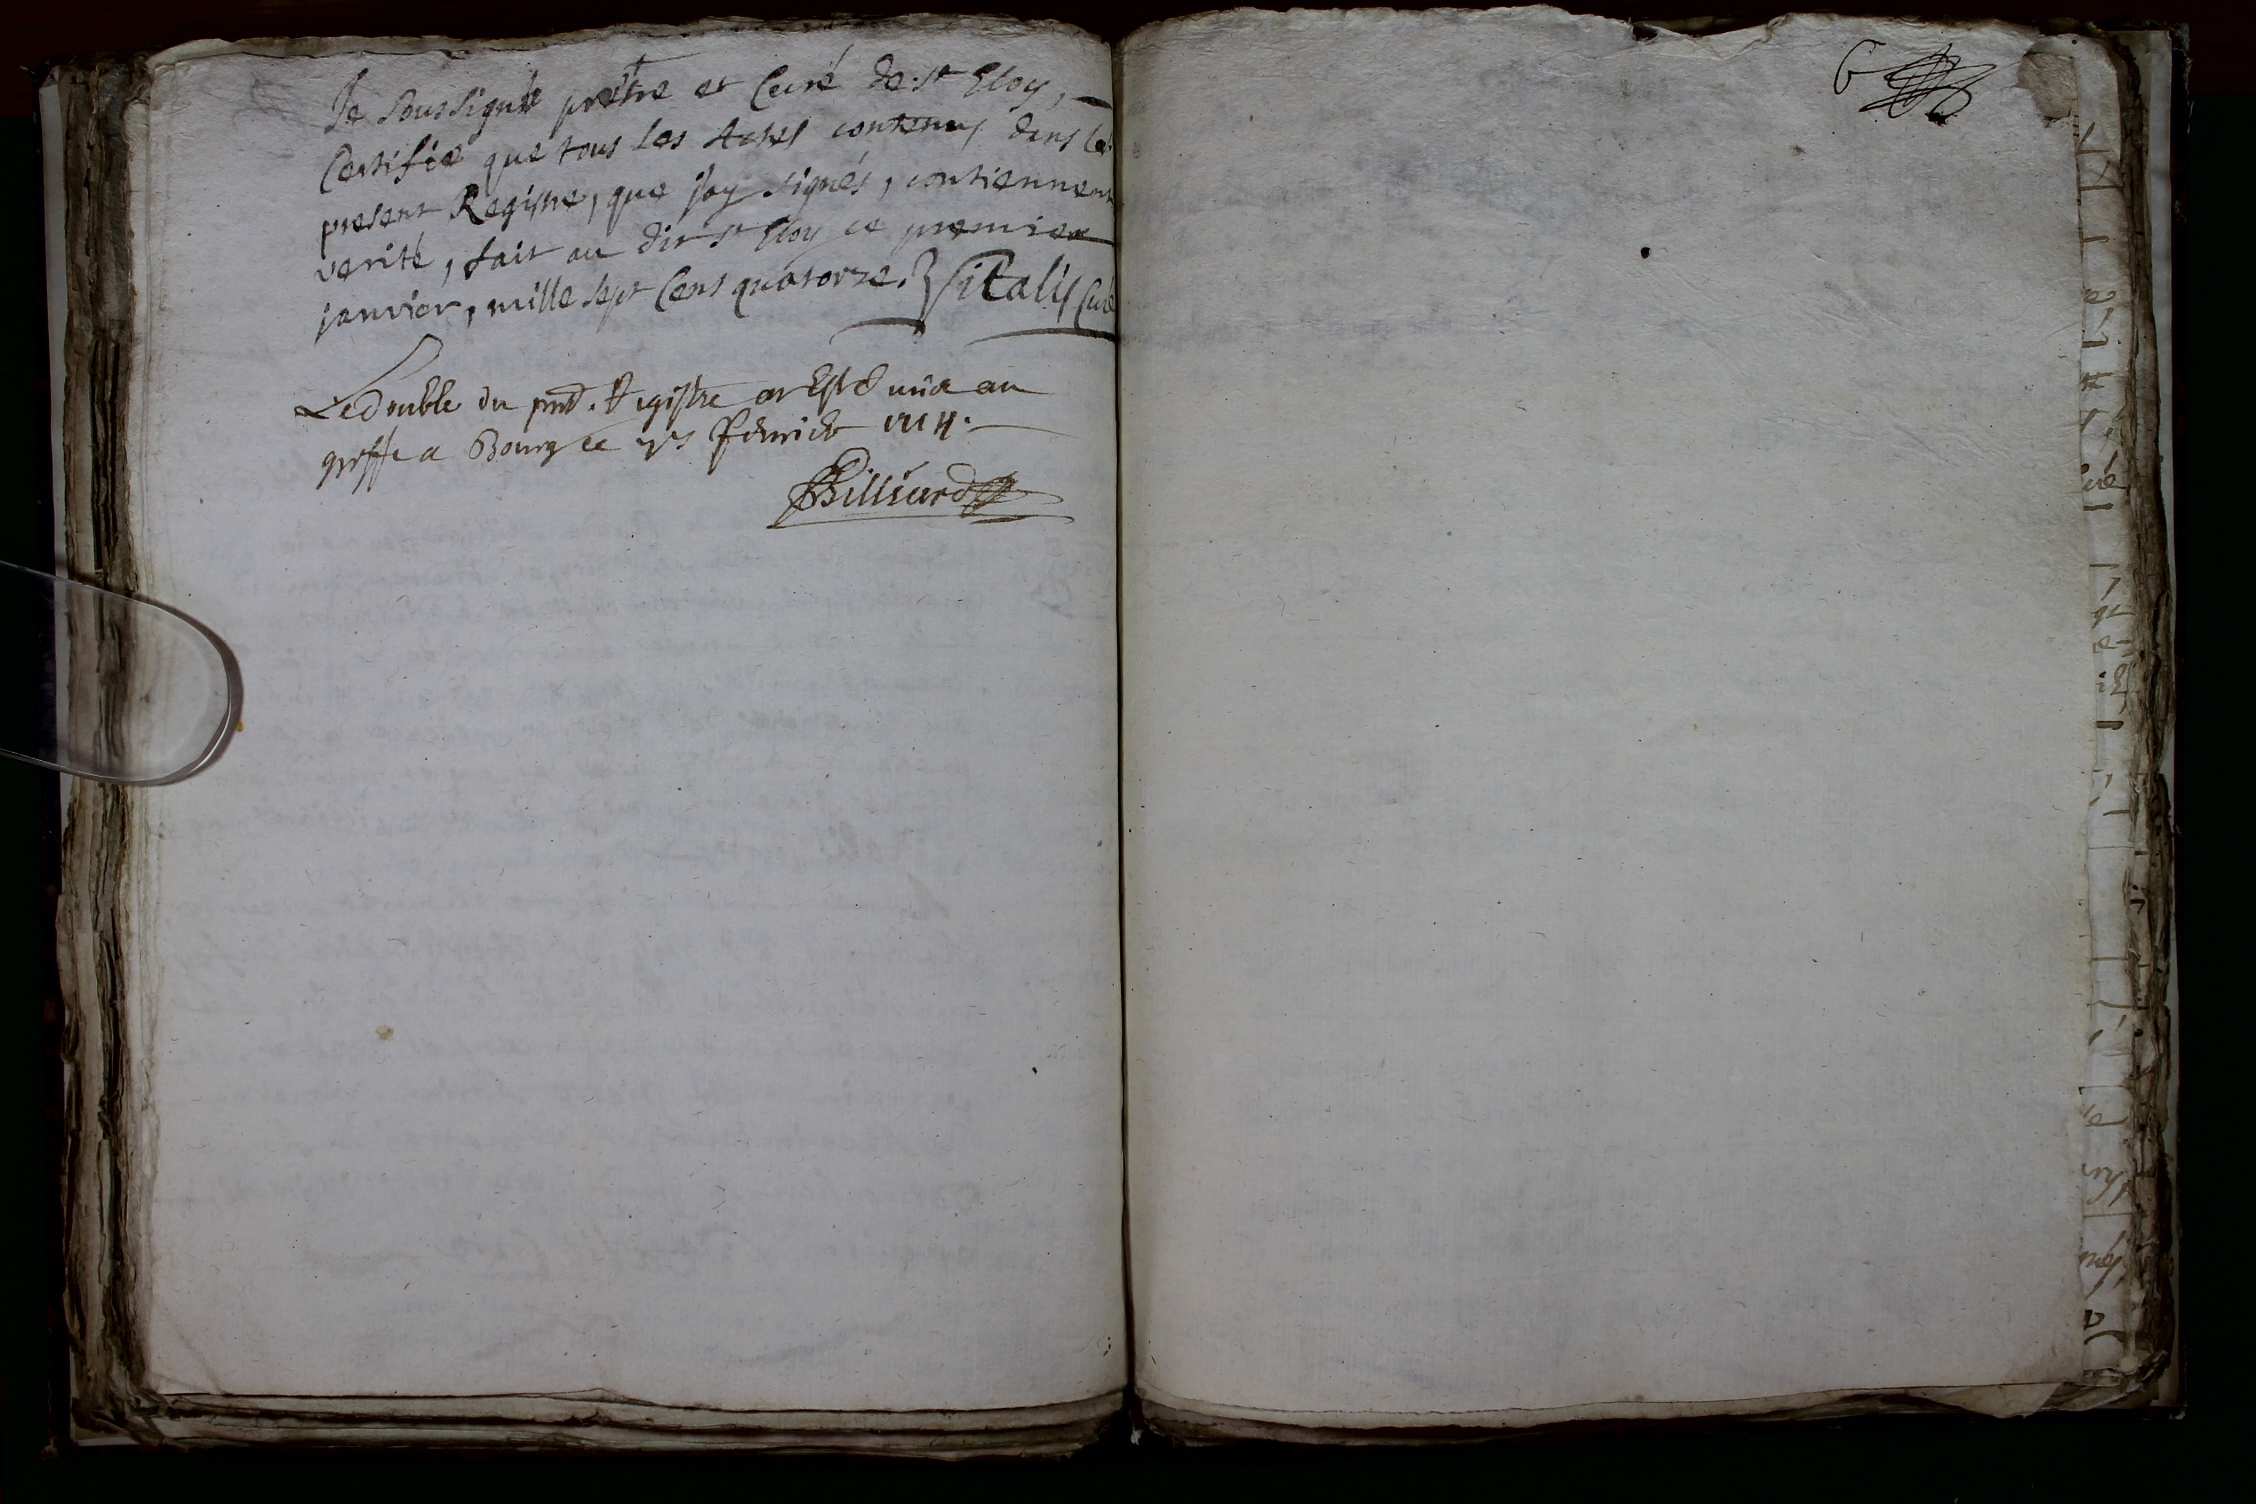 Je soussigné prêtre et Curé de St Eloy,
Certifie que tous les Actes contenus dans le
present Registre, que jay signés, contiennent
verité, fait au dit St Eloy ce premier
janvier, mille sept Cens quatorze. Vitalis Curé
Le double du pnt. Registre at Esté mis au
greffe a Bourg ce Février 1714.
Billiard
6